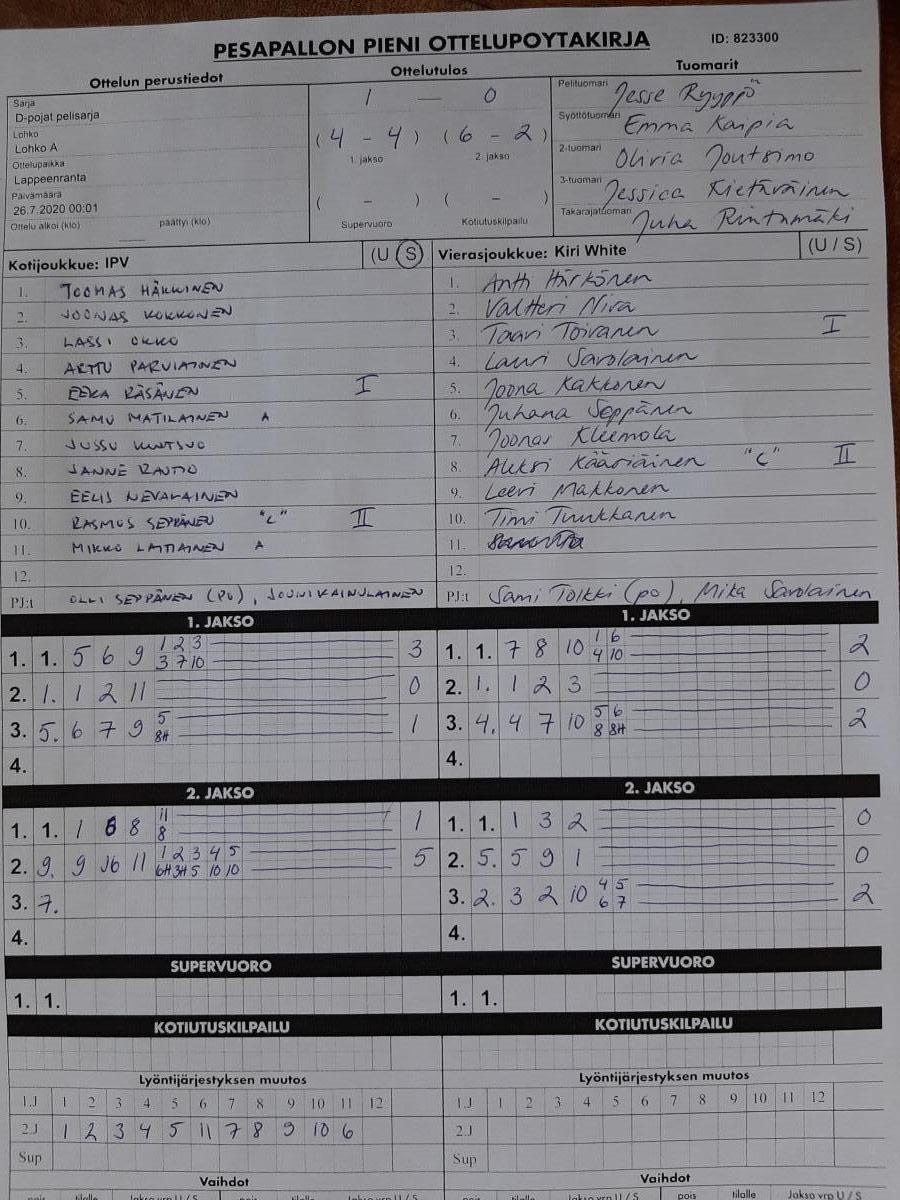 PESAPALLON PIENI OTTELUPOYTAKIRJA
ID: 823300
Ottelun perustiedot
Sarja
D-pojat pelisarja
Lohko
Lohko A
Ottelupaikka
Lappeenranta
Päivämäärä
26.7.2020 00:01
Ottelu alkoi (klo) päättyi (klo)
Ottelutulos
1 — 0
(4 - 4) (6 - 2)
1. jakso 2. jakso
( - ) ( - )
Supervuoro Kotiutuskilpailu
Tuomarit
Pelituomari Jesse Ryyppö
Syöttötuomari Emma Karpia
2-tuomari Olivia Joutsimo
3-tuomari Jessica Kietäväinen
Takarajatuomari Juha Rintamäki
Kotijoukkue: IPV (U S)
1. TOOMAS HÄKKINEN
2. JOONAS KOKKONEN
3. LASSI OKKO
4. ARTTU PARVIAINEN
5. EEKA RÄSÄNEN I
6. SAMU MATILAINEN A
7. JUSSU
8. JANNE RAUTIO
9. EELIS NEVALAINEN
10. RASMUS SEPPÄNEN "C" II
11. MIKKO LAITIAINEN A
12.
PJ:t OLLI SEPPÄNEN (PO), JOUNI KAINULAINEN
Vierasjoukkue: Kiri White (U / S)
1. Antti Härkönen
2. Valtteri Nira
3. Taavi Toivanen I
4. Lauri Savolainen
5. Joona Kakkonen
6. Juhana Seppänen
7. Joonas Kleemola
8. Aleksi Kääriäinen "C" II
9. Leevi Makkonen
10. Timi Tuukkanen
11.
12.
PJ:t Sami Tolkki (po), Mika Savolainen
1. JAKSO
1. 1. 5 6 9 1 2 3 3
3 7 10
2. 1. 1 2 11 0
3. 5. 6 7 9 5 1
8H
4.
1. JAKSO
1. 1. 7 8 10 1 6 2
4 10
2. 1. 1 2 3 0
3. 4. 4 7 10 5 6 2
8 8H
4.
2. JAKSO
1. 1. 1 8 11 1
8
2. 9. 9 11 1 2 3 4 5 5
6H 3H 5 10 10
3. 7.
4.
2. JAKSO
1. 1. 1 3 2 0
2. 5. 5 9 1 0
3. 2. 3 2 10 4 5 2
6 7
4.
SUPERVUORO
1. 1.
SUPERVUORO
1. 1.
KOTIUTUSKILPAILU
KOTIUTUSKILPAILU
Lyöntijärjestyksen muutos
1.J 1 2 3 4 5 6 7 8 9 10 11 12
2.J 1 2 3 4 5 11 7 8 9 10 6
Sup
Lyöntijärjestyksen muutos
1.J 1 2 3 4 5 6 7 8 9 10 11 12
2.J
Sup
Vaihdot
pois tilalle Jakso vrp U / S pois tilalle Jakso vrp U / S
Vaihdot
pois tilalle Jakso vrp U / S pois tilalle Jakso vrp U / S